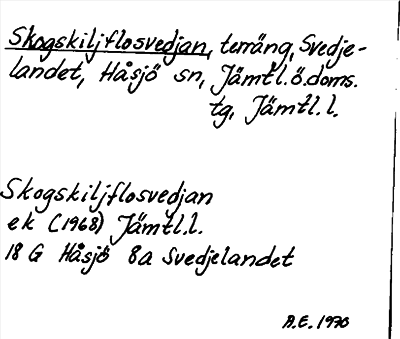 Skogskiljflosvedjan, terräng, Svedje-
landet, Håsjö sn, Jämtl.ö.doms.
tg, Jämtl.l.
Skogskiljflosvedjan
ek (1968) Jämtl.l.
18 G Håsjö 8a Svedjelandet
A.E. 1970